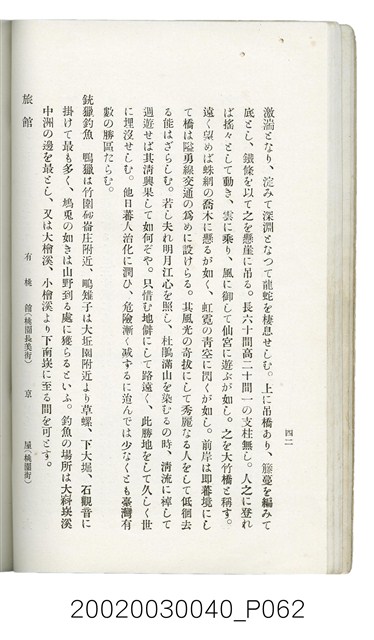 四二
激湍となり、淀みて深淵となつて龍蛇を棲息せしむ。上に吊橋あり、籐蔓を編みて
底とし、鐵條を以て之を懸崖に吊る。長六十間高二十間一の支柱無し。人之に登れ
ば搖々として動き、雲に乘り、風に御して仙宮に遊ぶが如し。之を大竹橋と稱す。
遠く望めば蛛網の喬木に懸るが如く、虹霓の靑空に閃くが如し。前岸は即蕃境にし
て橋は隘勇線交通の爲めに設けらる。其風光の奇拔にして秀麗なる人をして低徊去
る能はざらしむ。若し夫れ明月江心を照し、杜鵑滿山を染むるの時、淸流に棹して
週遊せば其淸興果して如何ぞや。只惜む地僻にして路遠く、此勝地をして久しく世
に埋沒せしむ。他日蕃人治化に潤ひ、危險漸く減ずるに迨んでは少なくとも臺灣有
數の勝區たらむ。
銃獵釣魚　鴨獵は竹圍拗崙庄附近、鴫雉子は大坵園附近より草螺、下大堀、石觀音に
掛けて最も多く、鳩兎の如きは山野到る處に獲らるといふ。釣魚の場所は大嵙崁溪
中洲の邊を最とし、又は大檜溪、小檜溪より下南崁に至る間を可とす。
旅館　有桃館（桃園長美街）　京屋（桃園街）
20020030040_P062